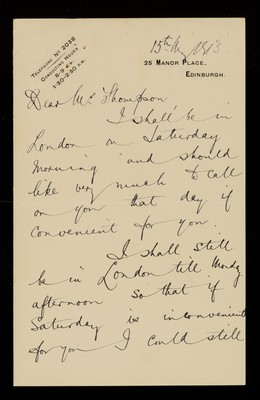 TELEPHONE NO 2038
CONSULTING HOURS
8-9 A.M.
1.30-2.30 P.M.
15th My 1913
25 MANOR PLACE,
EDINBURGH.
Dear Mr Thompson
I shall be in
London on Saturday
morning and should
like very much to call
on you that day if
convenient for you.
I shall still
be in London till Monday
afternoon so that if
Saturday is inconvenient
for you I could still